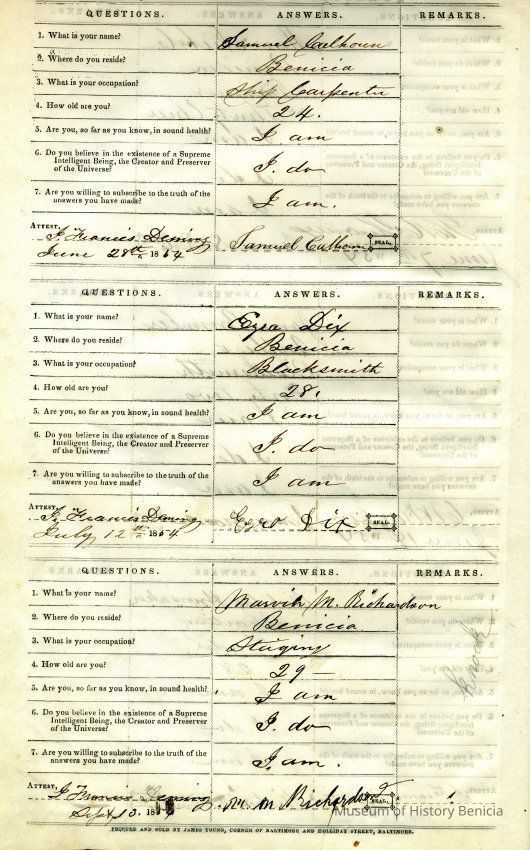 QUESTIONS. ANSWERS. REMARKS.
1. What is your name? Samuel Calhoun
2. Where do you reside? Benicia
3. What is your occupation? Ship Carpenter
4. How old are you? 24.
5. Are you, so far as you know, in sound health? I am
6. Do you believe in the existence of a Supreme
Intelligent Being, the Creator and Preserver
of the Universe? I. do
7. Are you willing to subscribe to the truth of the
answers you have made? I am.
ATTEST,
J. Francis Deming Samuel Calhoun SEAL.
June 28th 1854
QUESTIONS. ANSWERS. REMARKS.
1. What is your name? Ezra Dix
2. Where do you reside? Benicia
3. What is your occupation? Blacksmith
4. How old are you? 28.
5. Are you, so far as you know, in sound health? I am
6. Do you believe in the existence of a Supreme
Intelligent Being, the Creator and Preserver
of the Universe? I. do
7. Are you willing to subscribe to the truth of the
answers you have made? I am
ATTEST,
J. Francis Deming Ezra Dix SEAL.
July 12th 1854
QUESTIONS. ANSWERS. REMARKS.
1. What is your name? Marvin M. Richardson
2. Where do you reside? Benicia
3. What is your occupation? Staging
4. How old are you? 29 —
5. Are you, so far as you know, in sound health? I am
6. Do you believe in the existence of a Supreme
Intelligent Being, the Creator and Preserver
of the Universe? I. do
7. Are you willing to subscribe to the truth of the
answers you have made? I am.
ATTEST,
J. Francis Deming M. M. Richardson SEAL.
Sept 13. 18
Museum of History Benicia
PRINTED AND SOLD BY JAMES YOUNG, CORNER OF BALTIMORE AND HOLLIDAY STREET, BALTIMORE.